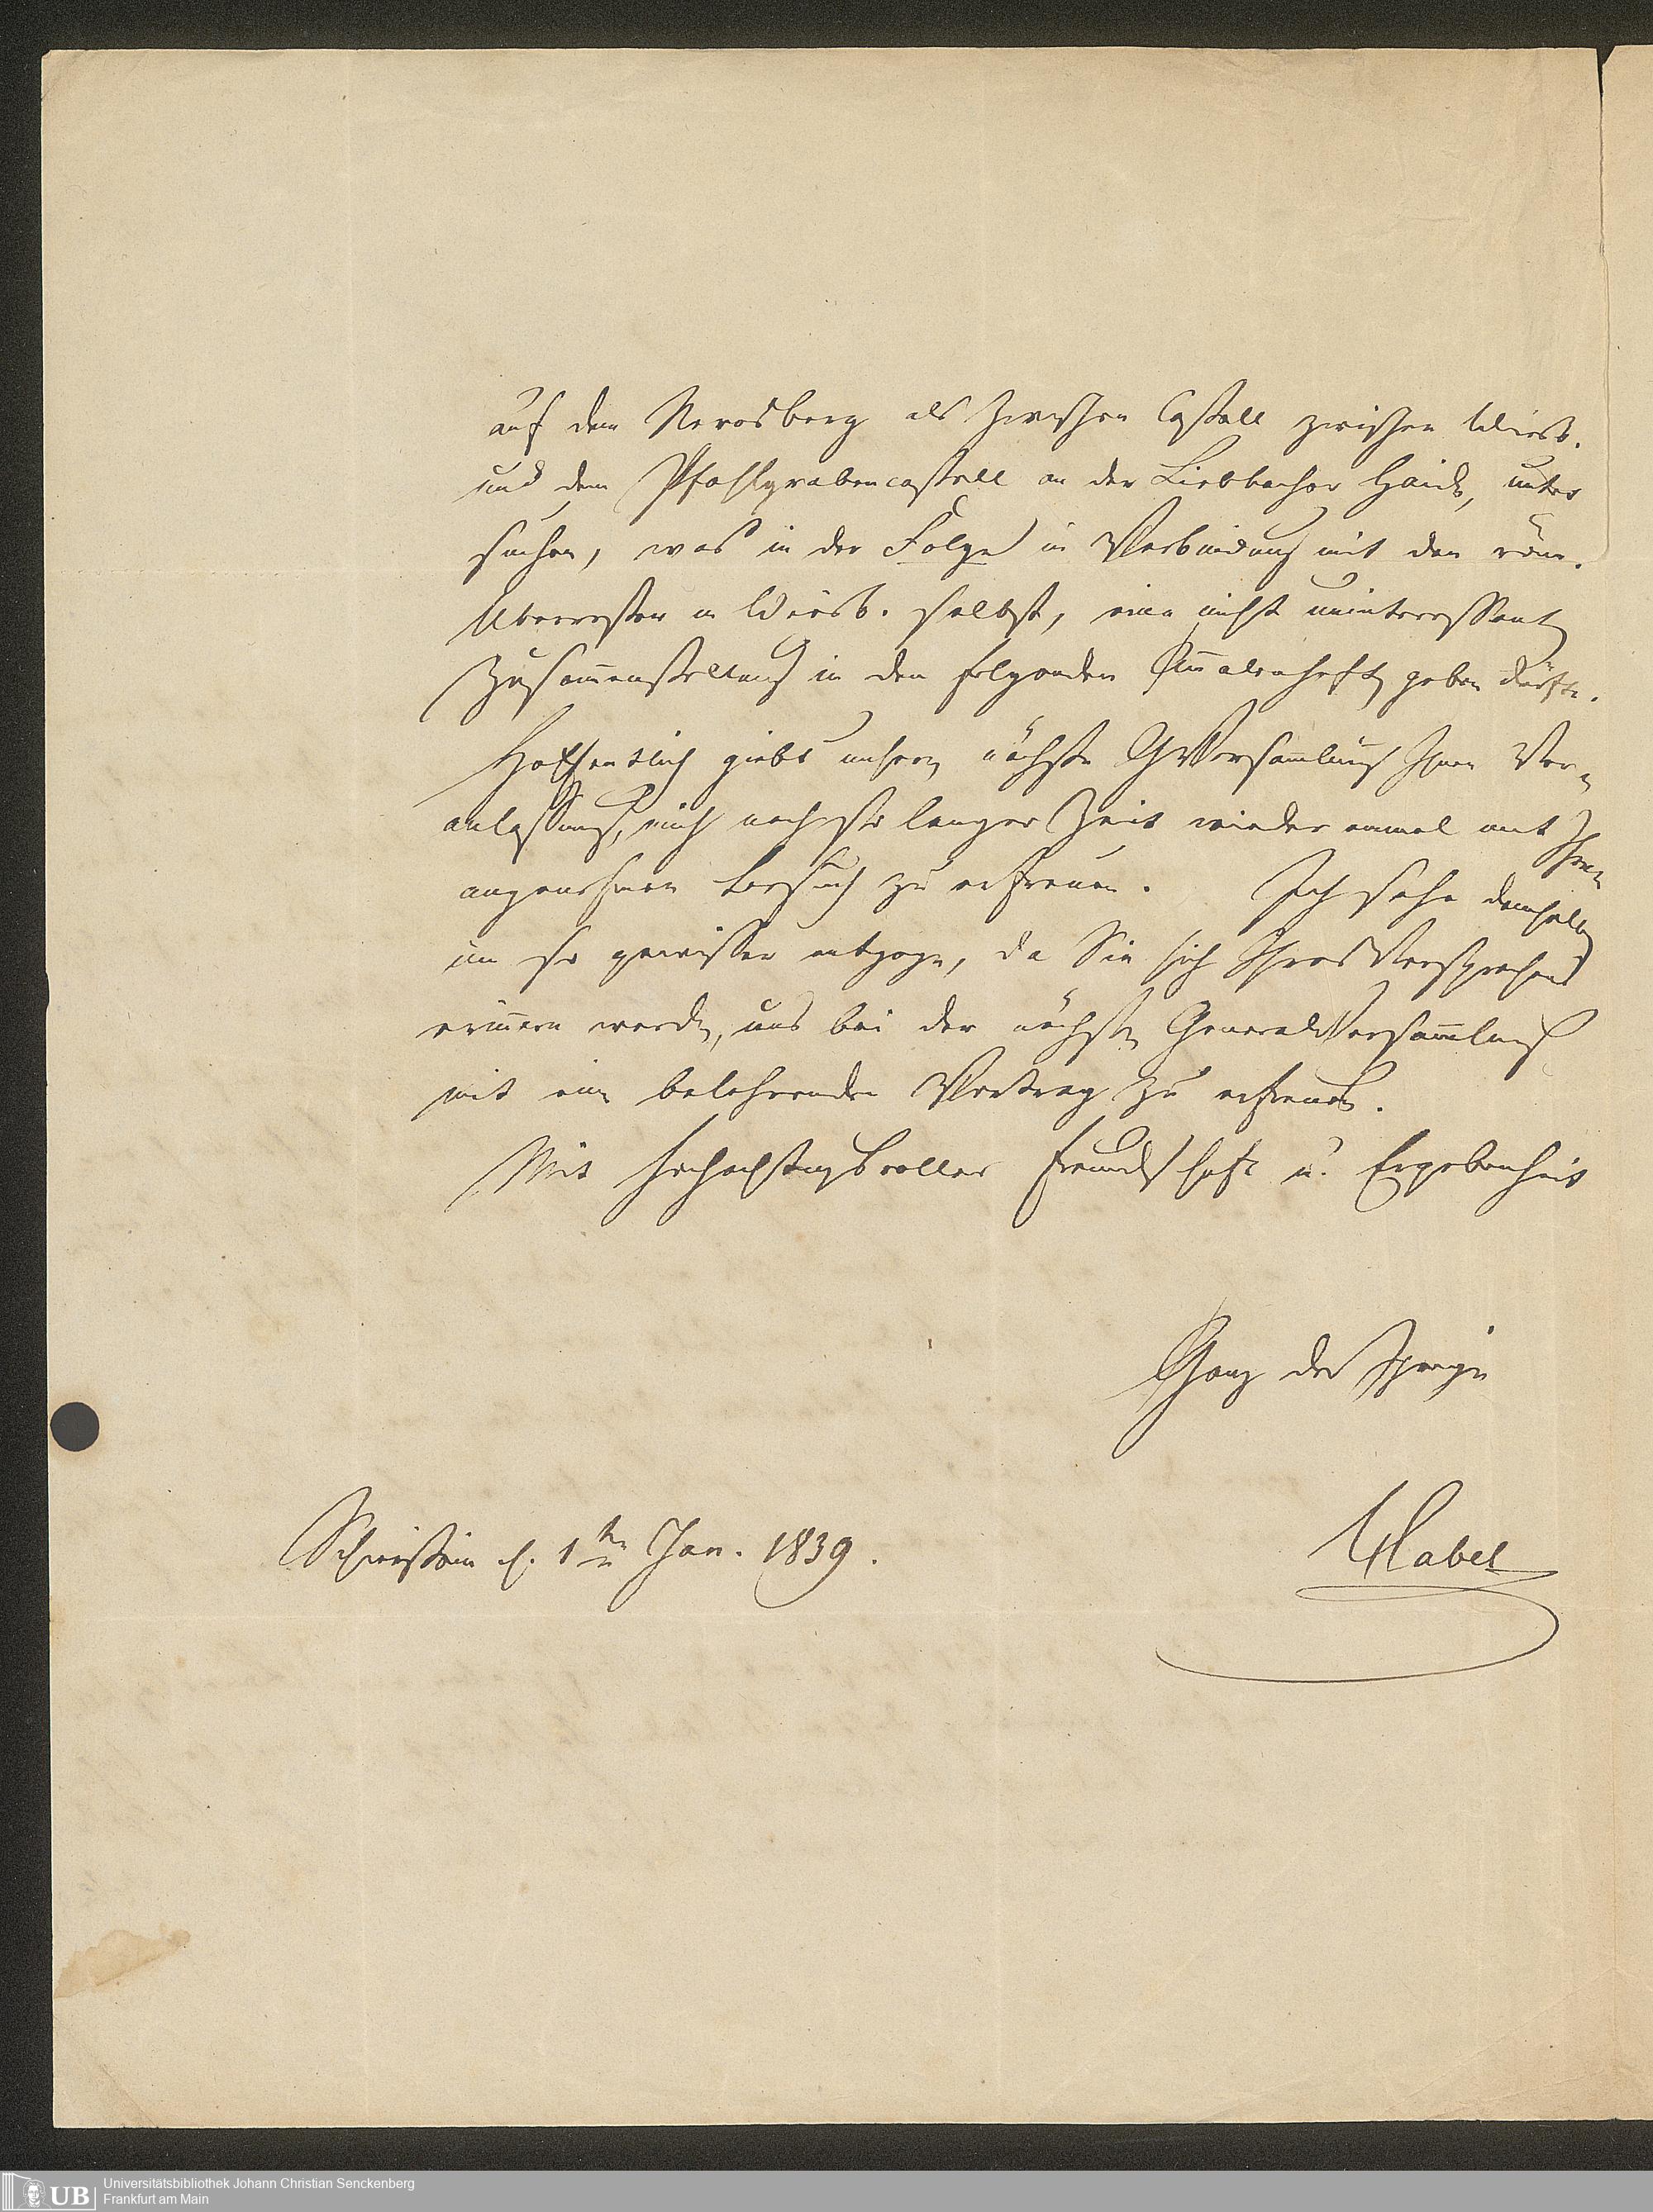 auf dem Nerosberg als Zwischen Castell zwischen Wiesb.
und dem Pfahlgrabencastell an der Liebbacher Haide, unter
suchen, was in der Folge in Verbindung mit den röm.
Überresten in Wiesb. selbst, eine nicht uninteressante
Zusam̄enstellung in den folgenden Añalenheften geben dürfte.
Hoffentlich giebt unsere nächste GVersam̄lung Ihnen Ver-
anlassung, mich nach so langer Zeit wieder einmal mit Ihrem
angenehmen Besuch zu erfreuen. Ich sehe demselben
um so gewisser entgegen, da Sie sich Ihres Versprechens
eriñern werden, uns bei der nächsten GeneralVersam̄lung
mit einem belehrenden Vortrag zu erfreuen.
Mit hochachtungsvoller Freundschaft u. Ergebenheit
Ganz der Ihrige
Schierstein d. 1ten Jan. 1839.
Habel
UB Universitätsbibliothek Johann Christian Senckenberg
Frankfurt am Main